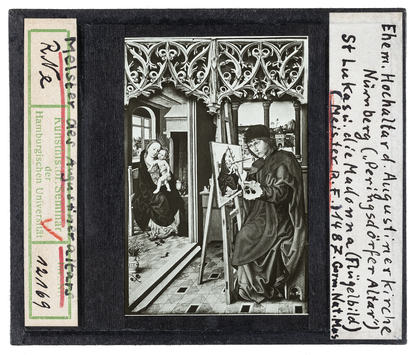 Meister des Augustineraltars
RNe
Kunsthist. Seminar
der
Hamburgischen Universität
12169
Ehem. Hochaltar d. Augustinerkirche
Nürnberg („Peringsdörfer Altar“)
St Lukas i. die Madonna (Flügelbild)
(Meister R.F.) 1487. Germ. Nat. Mus